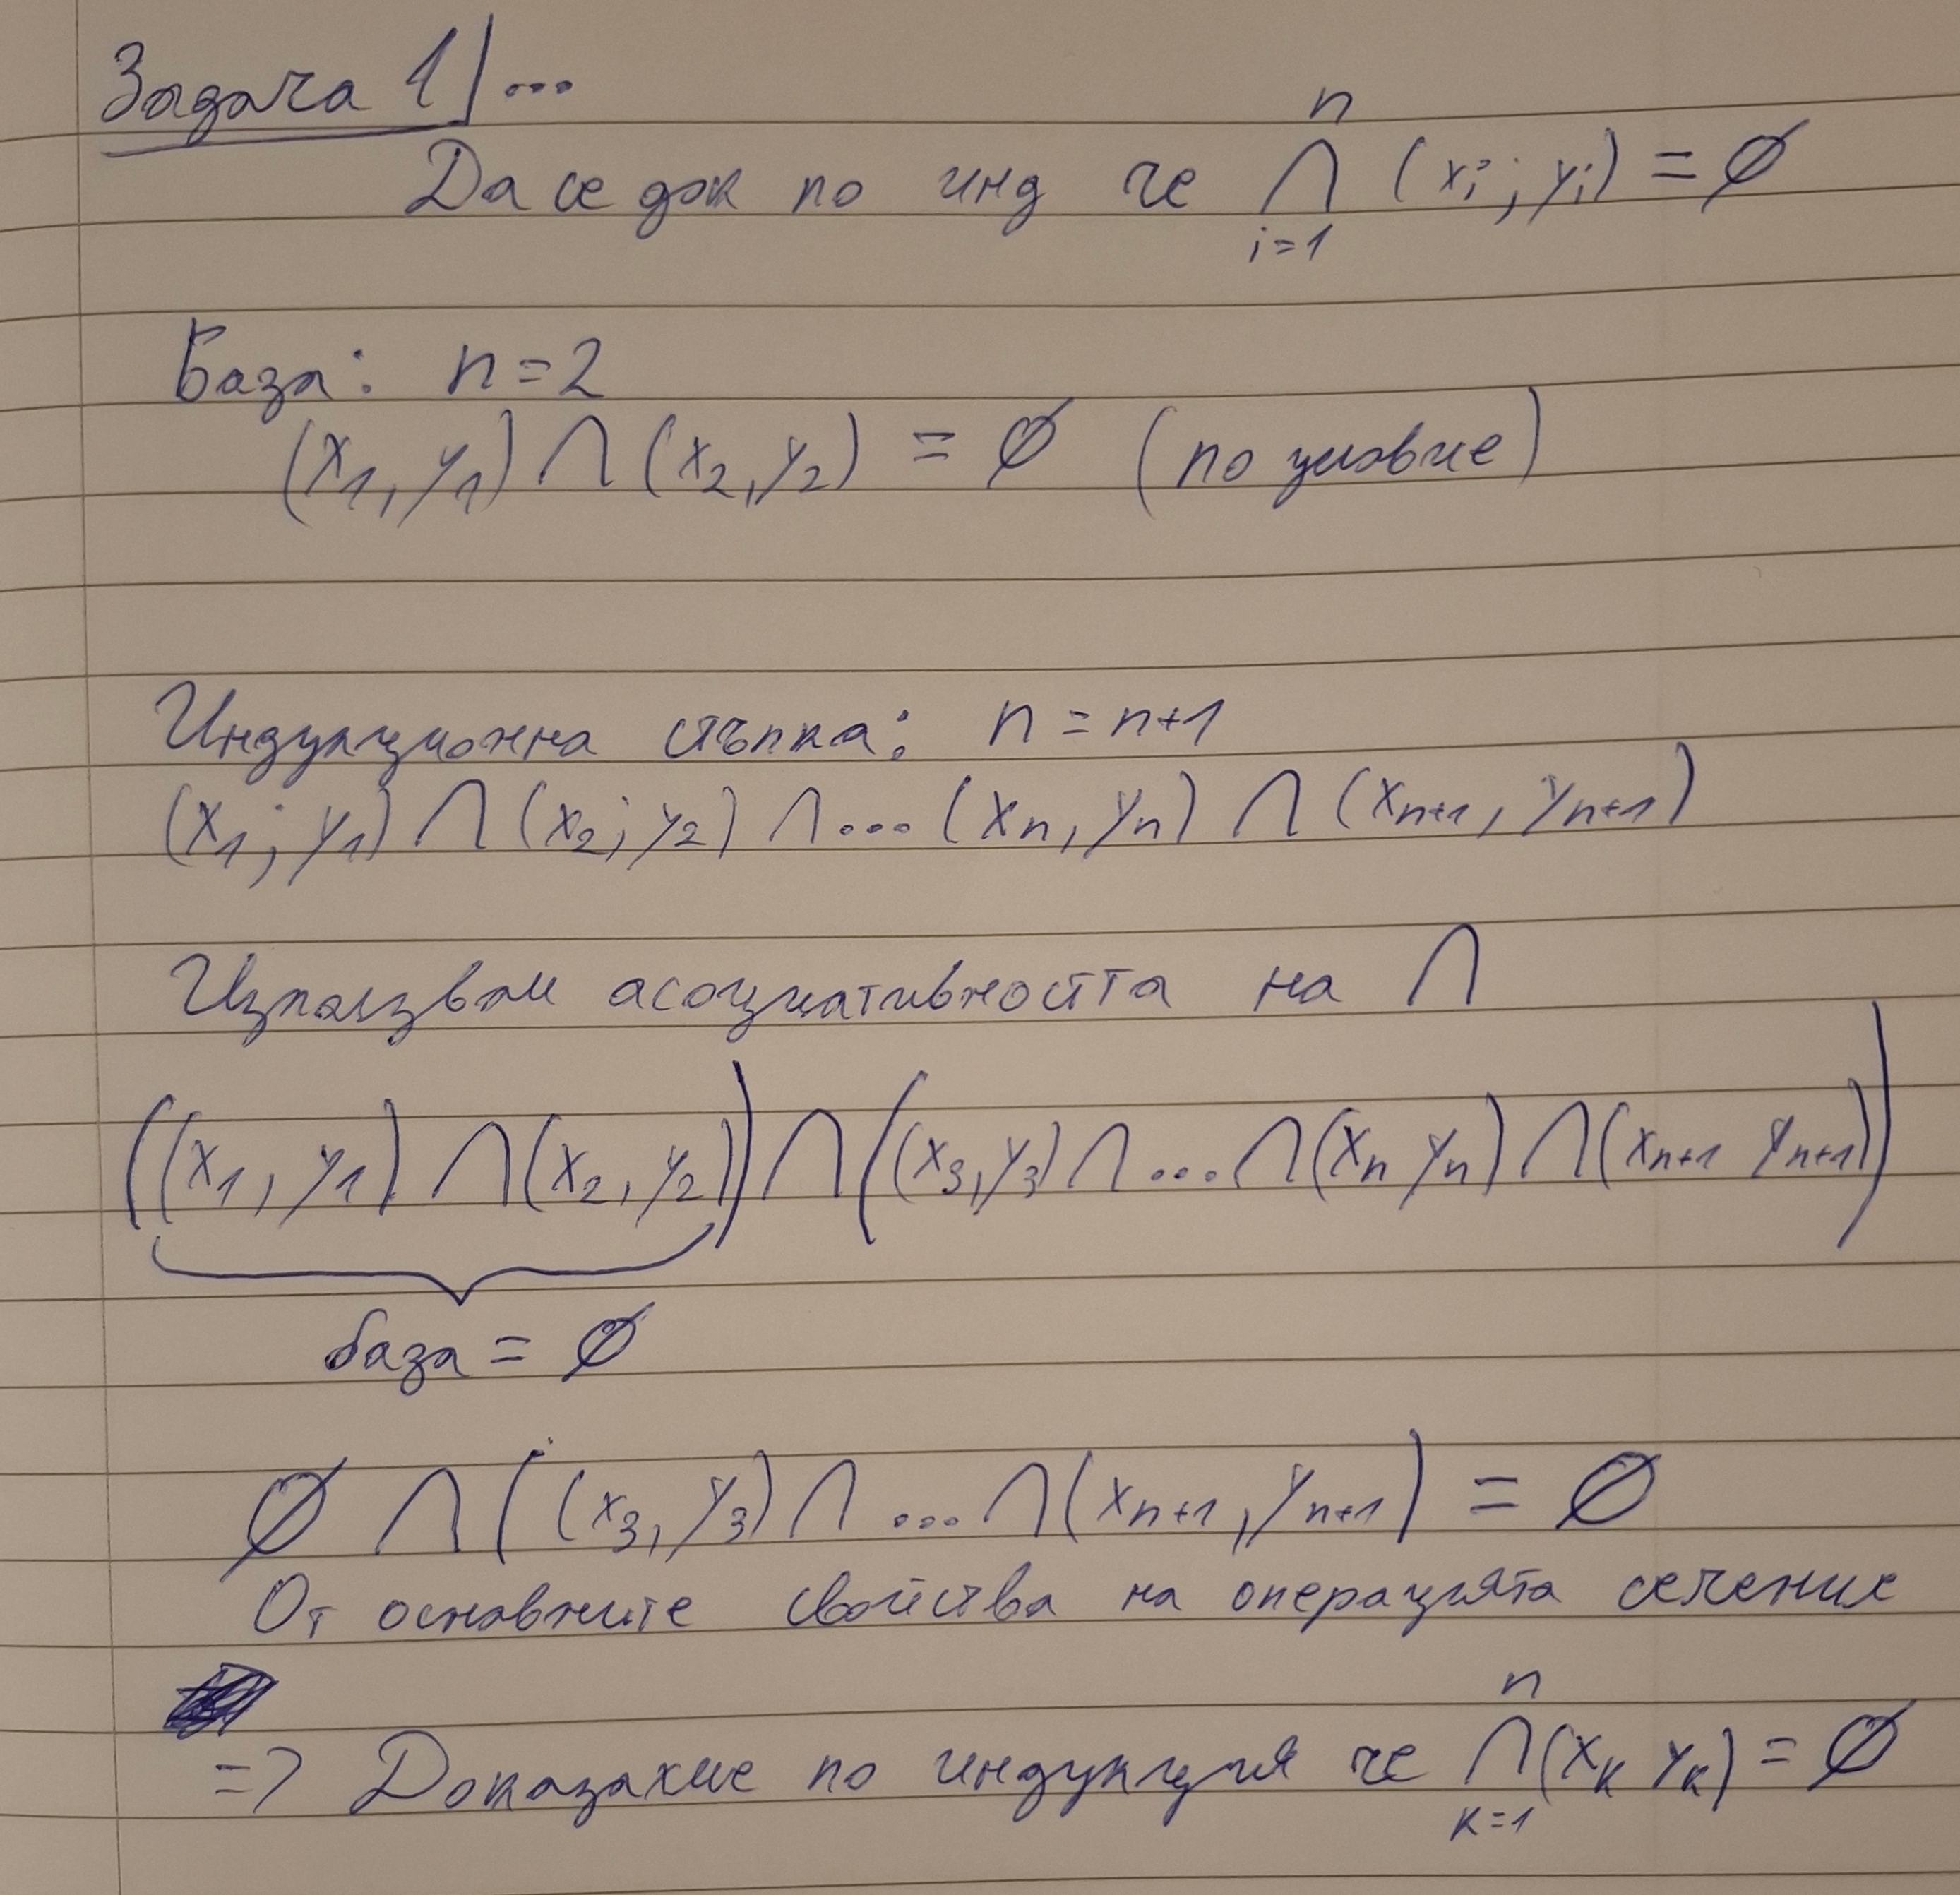 Задача 1 | ...
n
Да се док по инд че ∩ (xi ; yi) = ∅
i=1
База: n=2
(x1, y1) ∩ (x2, y2) = ∅ (по условие)
Индукционна стъпка: n = n+1
(x1; y1) ∩ (x2; y2) ∩ ... (xn, yn) ∩ (xn+1, yn+1)
Използвам асоциативността на ∩
((x1, y1) ∩ (x2, y2)) ∩ ((x3, y3) ∩ ... ∩ (xn yn) ∩ (xn+1 yn+1))
база = ∅
∅ ∩ ((x3, y3) ∩ ... ∩ (xn+1, yn+1) = ∅
От основните свойства на операцията сечение
n
=> Доказахме по индукция че ∩ (xk yk) = ∅
k=1